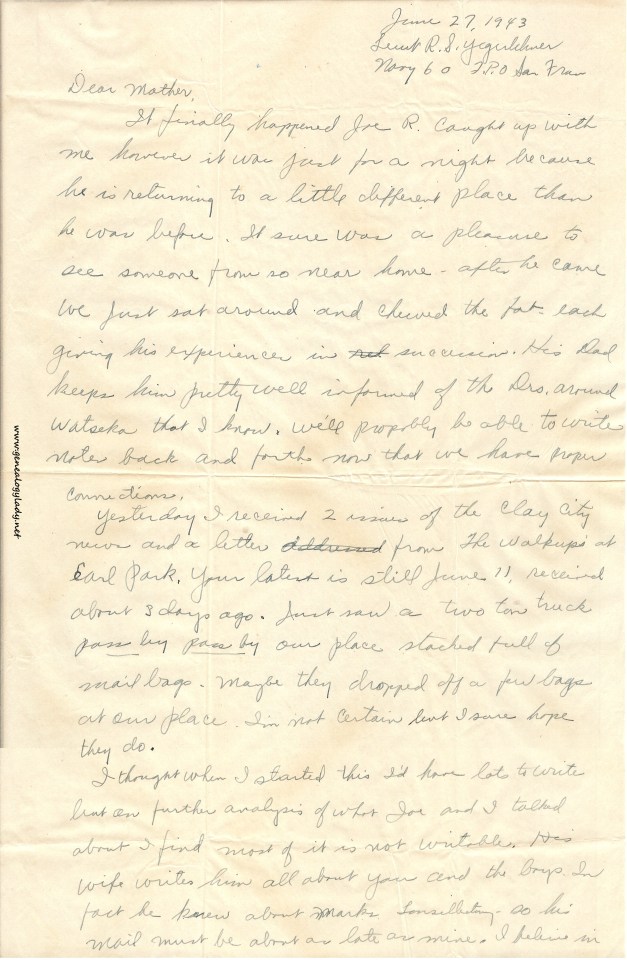 June 27, 1943
Lieut R. S. Yegerlehner
Navy 60 F.P.O San Fran
Dear Mother,
It finally happened Joe R. caught up with
me however it was just for a night because
he is returning to a little different place than
he was before. It sure was a pleasure to
see someone from so near home - after he came
we just sat around and chewed the fat - each
giving his experiences in succession. His Dad
keeps him pretty well informed of the Drs. around
Watseka that I know. We'll propobly be able to write
notes back and forthe now that we have proper
connections.
Yesterday I received 2 issues of the Clay City
news and a letter addressed from The Walkups at
Earl Park. Your latest is still June 11, received
about 3 days ago. Just saw a two ton truck
pass by pass by our place stacked full of
mail bags. Maybe they dropped off a few bags
at our place. I'm not certain but I sure hope
they do.
I thought when I started this I'd have lots to write
but on further analysis of what Joe and I talked
about I find most of it is not writable. His
wife writes him all about you and the boys. In
fact he knew about Marks tonsillectomy - so his
mail must be about as late as mine. I believe in
www.genealogylady.net